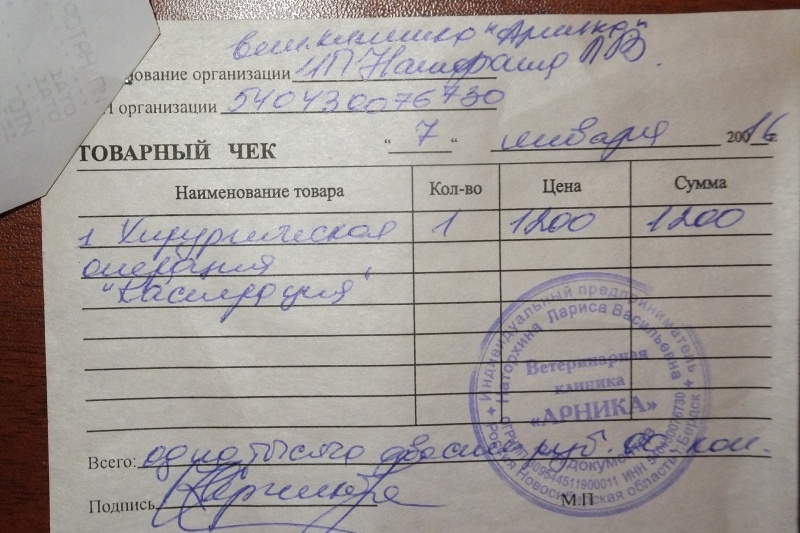 вет.клиника "Арника"
дование организации ИП Наторхина Л В
Н организации 540430076730
ТОВАРНЫЙ ЧЕК " 7 " января 200 16 г.
Наименование товара Кол-во Цена Сумма
1 Хирургическая 1 1200 1200
операция
"Кастрация"
Индивидуальный предприниматель
Наторхина Лариса Васильевна
Ветеринарная
клиника
«АРНИКА»
документов
ОГРНИП ИНН 540430076730
Россия Новосибирская область г. Бердск
Всего: одна тысяча двести руб. 00 коп.
Подпись
М.П